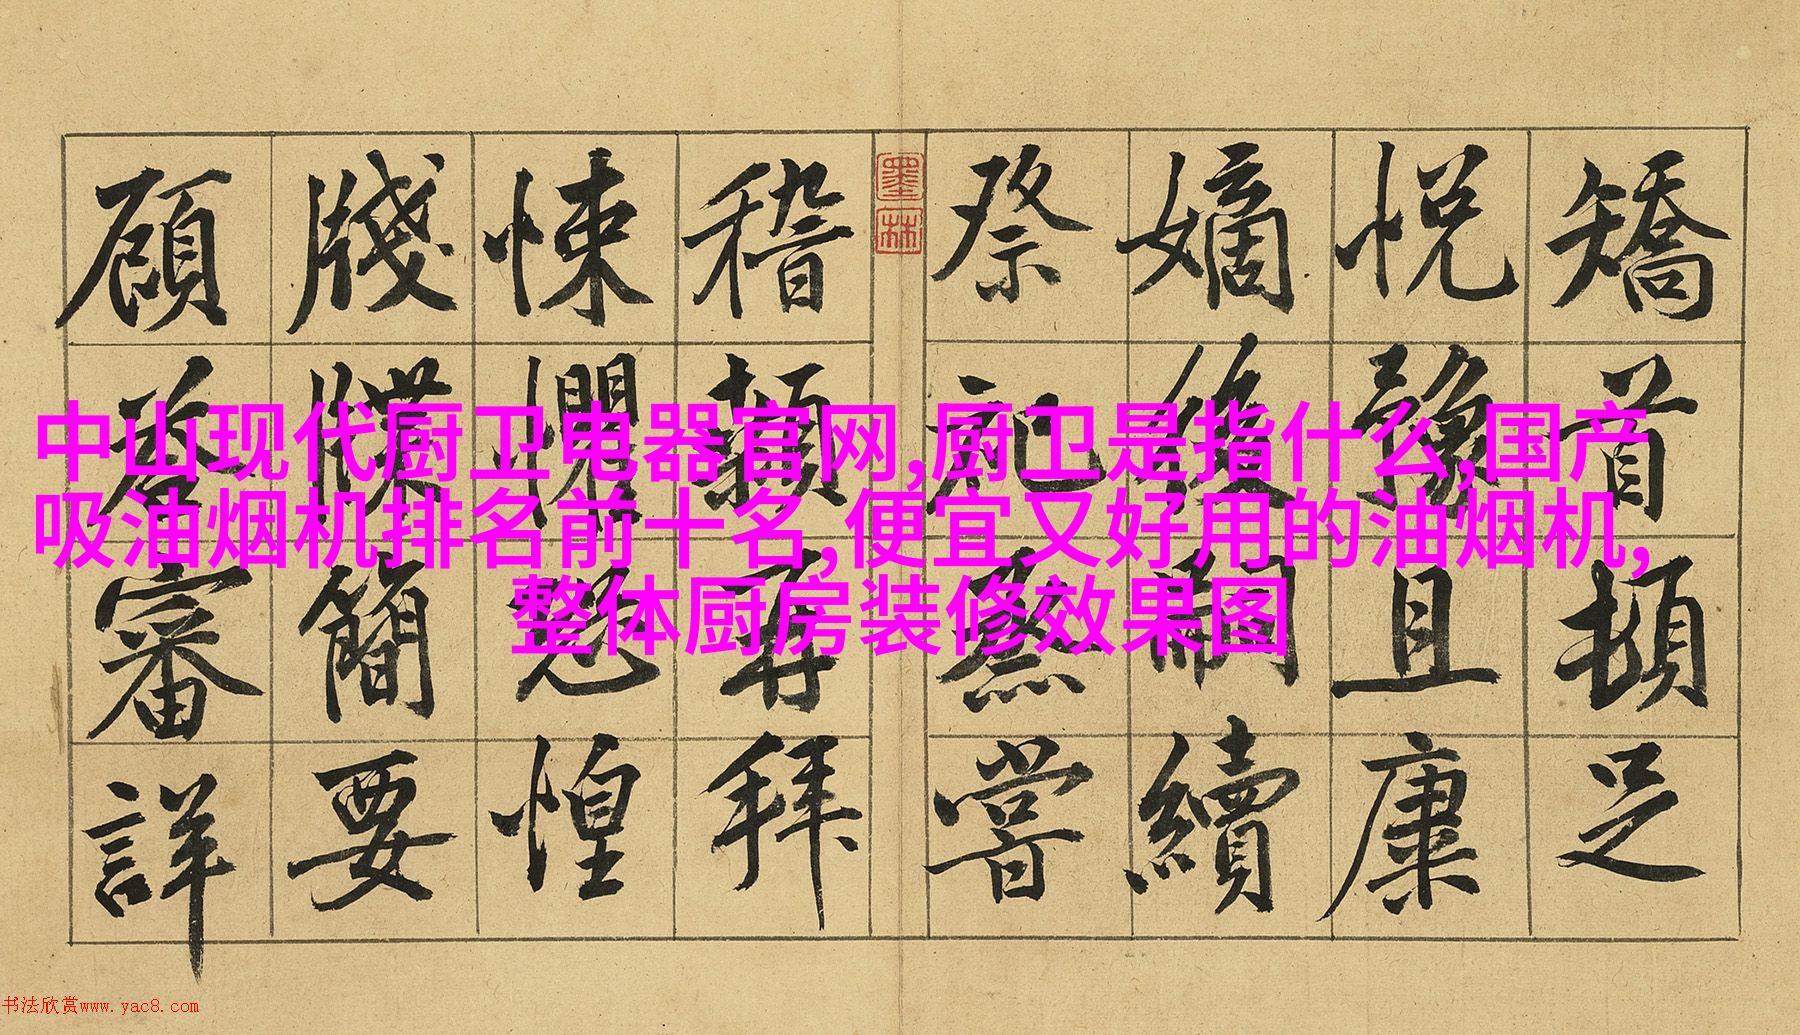 中山现代厨卫电器官网,厨卫是指什么,国产
吸油烟机排名前十名,便宜又好用的油烟机,
整体厨房装修效果图
矯首頓足
悅豫且康
嫡後嗣續
祭祀蒸嘗
墨林
稽顙再拜
悚懼恐惶
牋牒簡要
顧答審詳
书法欣赏www.yac8.com